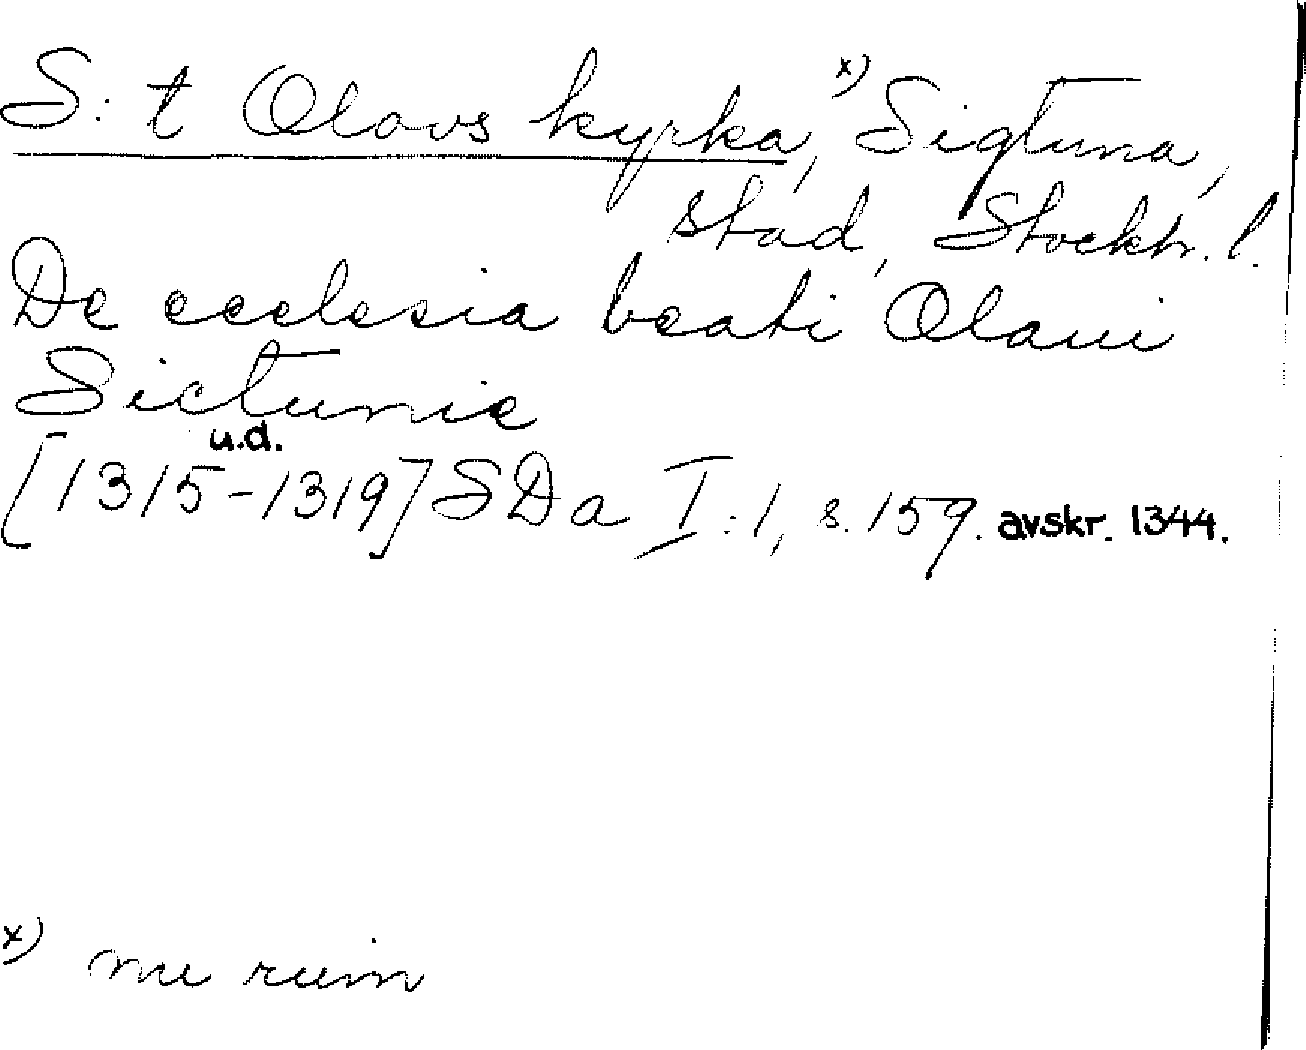 S:t Olovs kyrka, x) Sigtuna,
stad, Stockh. l.
De ecclesia beati Olaui
Sictunie
u.d.
[1315-1319] SDa I:1, s. 159. avskr. 1344.
x) nu ruin